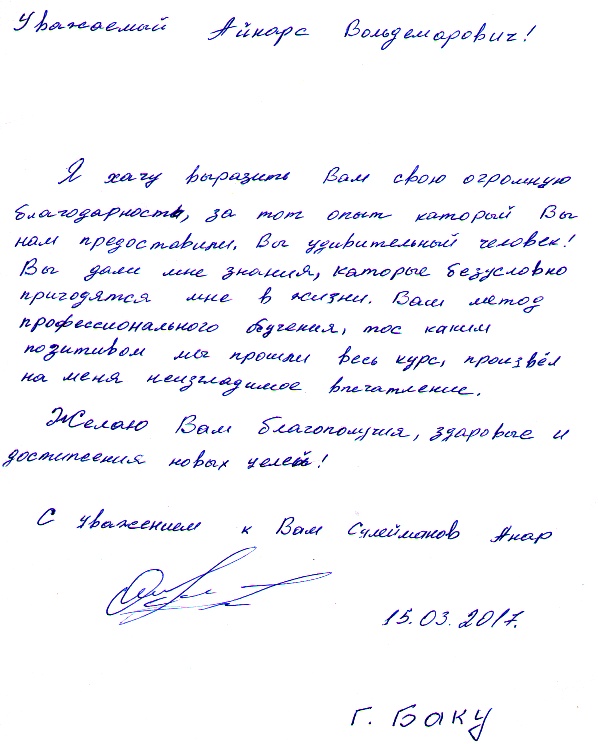 Уважаемый Айнарс Вольдемарович!
Я хачу выразить Вам свою огромную
благодарность, за тот опыт каторый Вы
нам предоставили. Вы удивительный человек!
Вы дали мне знания, каторые безусловно
пригодятся мне в жизни. Ваш метод
профессионального обучения, то с каким
позитивом мы прошли весь курс, произвёл
на меня неизгладимое впечатление.
Желаю Вам благополучия, здаровье и
достижения новых целей!
С уважением к Вам Сулейманов Анар
15.03.2017.
г. Баку